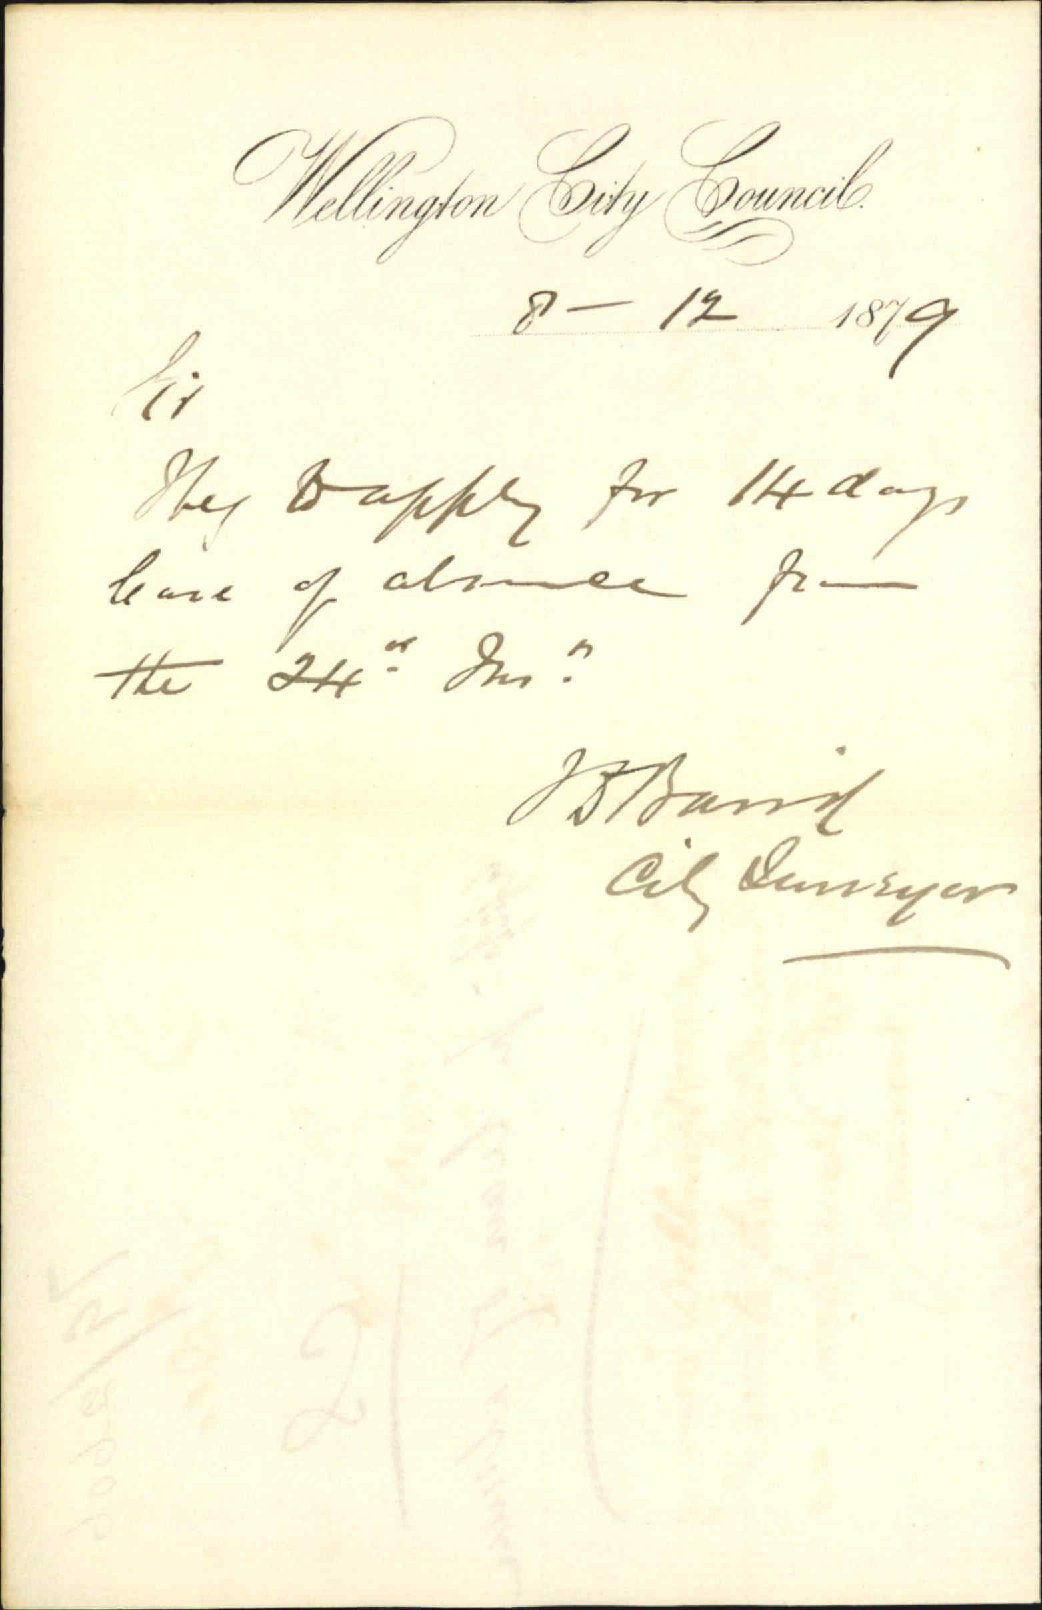 Wellington City Council.
8 – 12 1879
Sir
I beg to apply for 14 days
leave of absence from
the 24th Inst.
J D Baird
City Surveyor